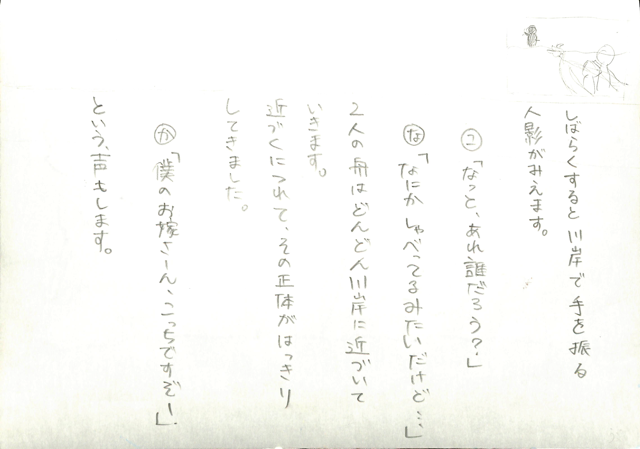 しばらくすると川岸で手を振る
人影がみえます。
㋙「なっと、あれ誰だろう?」
㋤「なにかしゃべってるみたいだけど…」
2人の舟はどんどん川岸に近づいて
いきます。
近づくにつれて、その正体がはっきり
してきました。
㋕「僕のお嫁さーん、こっちですぞー」
という、声もします。